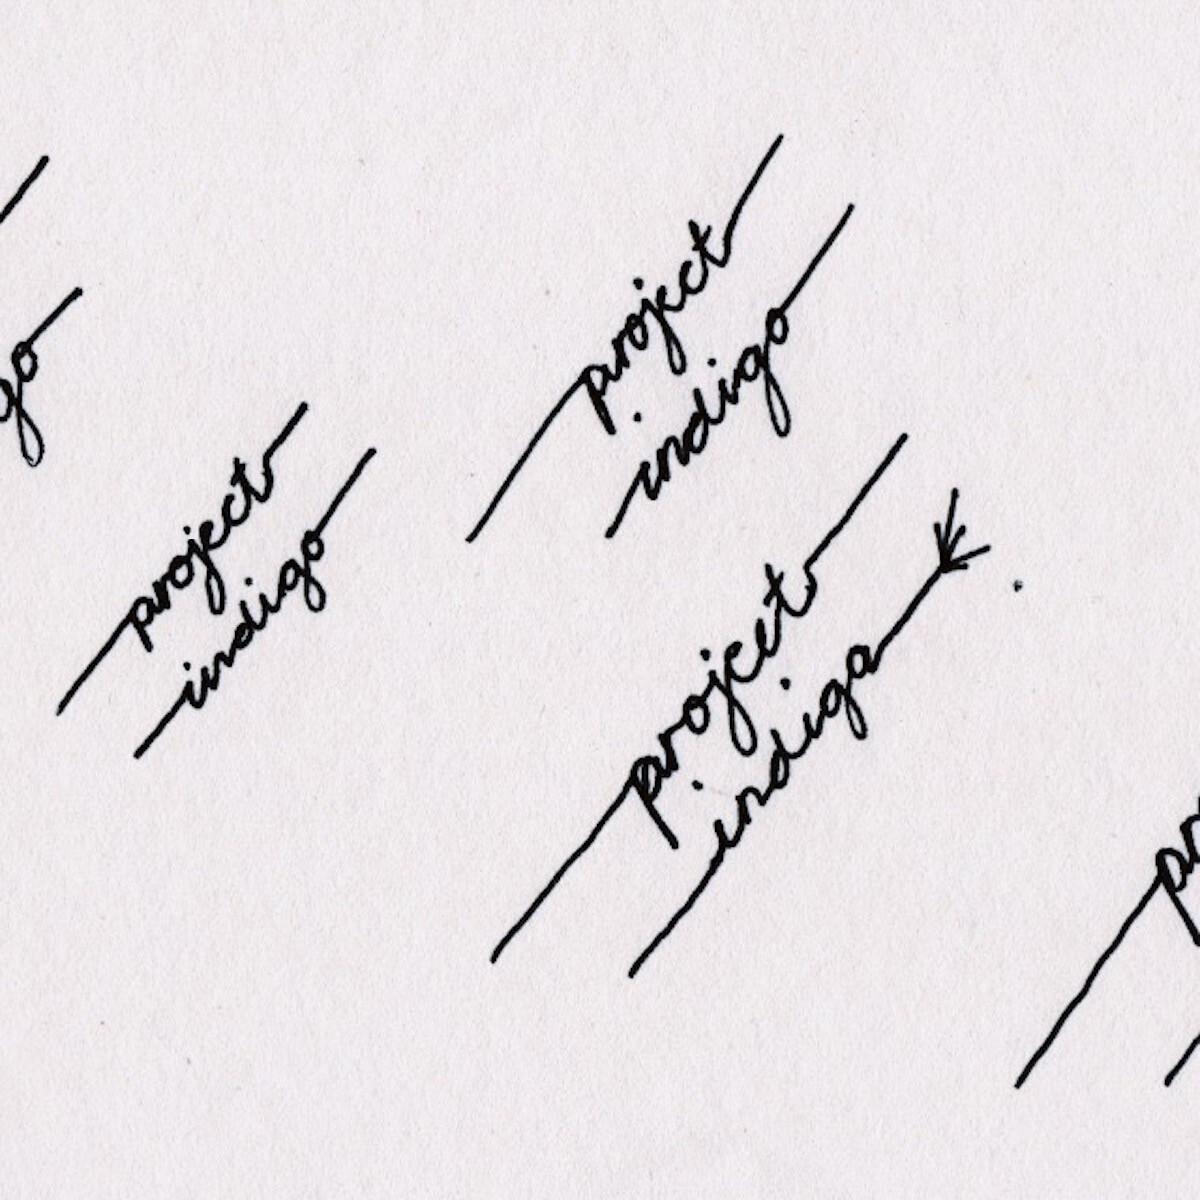 go
project
indigo
project
indigo
project
indigo
pr